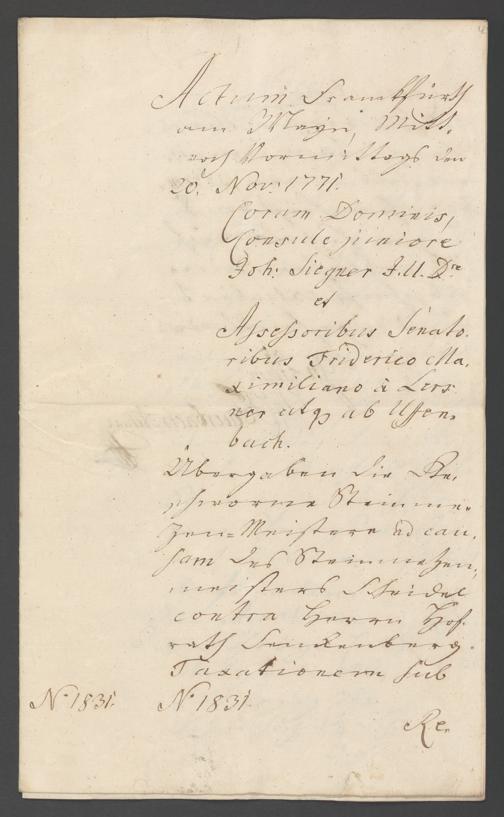 Actum Franckfürth
am Mayn, Mitt-
woch Vormittags den
20. Nov: 1771.
Coram Dominis,
Consule juniore
Joh: Siegner J.U.Dre
et
Assessoribus Senato-
ribus Friderico Ma-
ximiliano à Lers-
ner atq ab Uffen-
bach.
Übergaben die Ge-
schworne Steinme-
zen-Meistere ad cau-
sam des Steinmezen-
meisters Scheidel
contra Herrn Hof-
rath Senckenberg.
Taxationem sub
No 1831. No 1831.
Re-